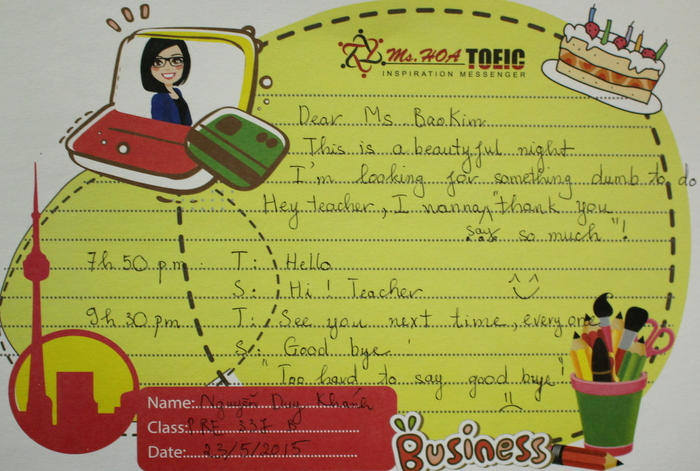 Ms. HOA TOEIC
INSPIRATION MESSENGER
Dear Ms BaoKim
This is a beautyful night
I'm looking for something dumb to do
Hey teacher, I wanna say "thank you
so much"!
7h 50 p.m : T : Hello
S : Hi ! Teacher ^^
9h 30 p.m T : See you next time, everyone
S : Good bye !
"Too hard to say good bye!"
Name: Nguyễn Duy Khánh
Class: PRE 337 A
Date: 23/5/2015
Business